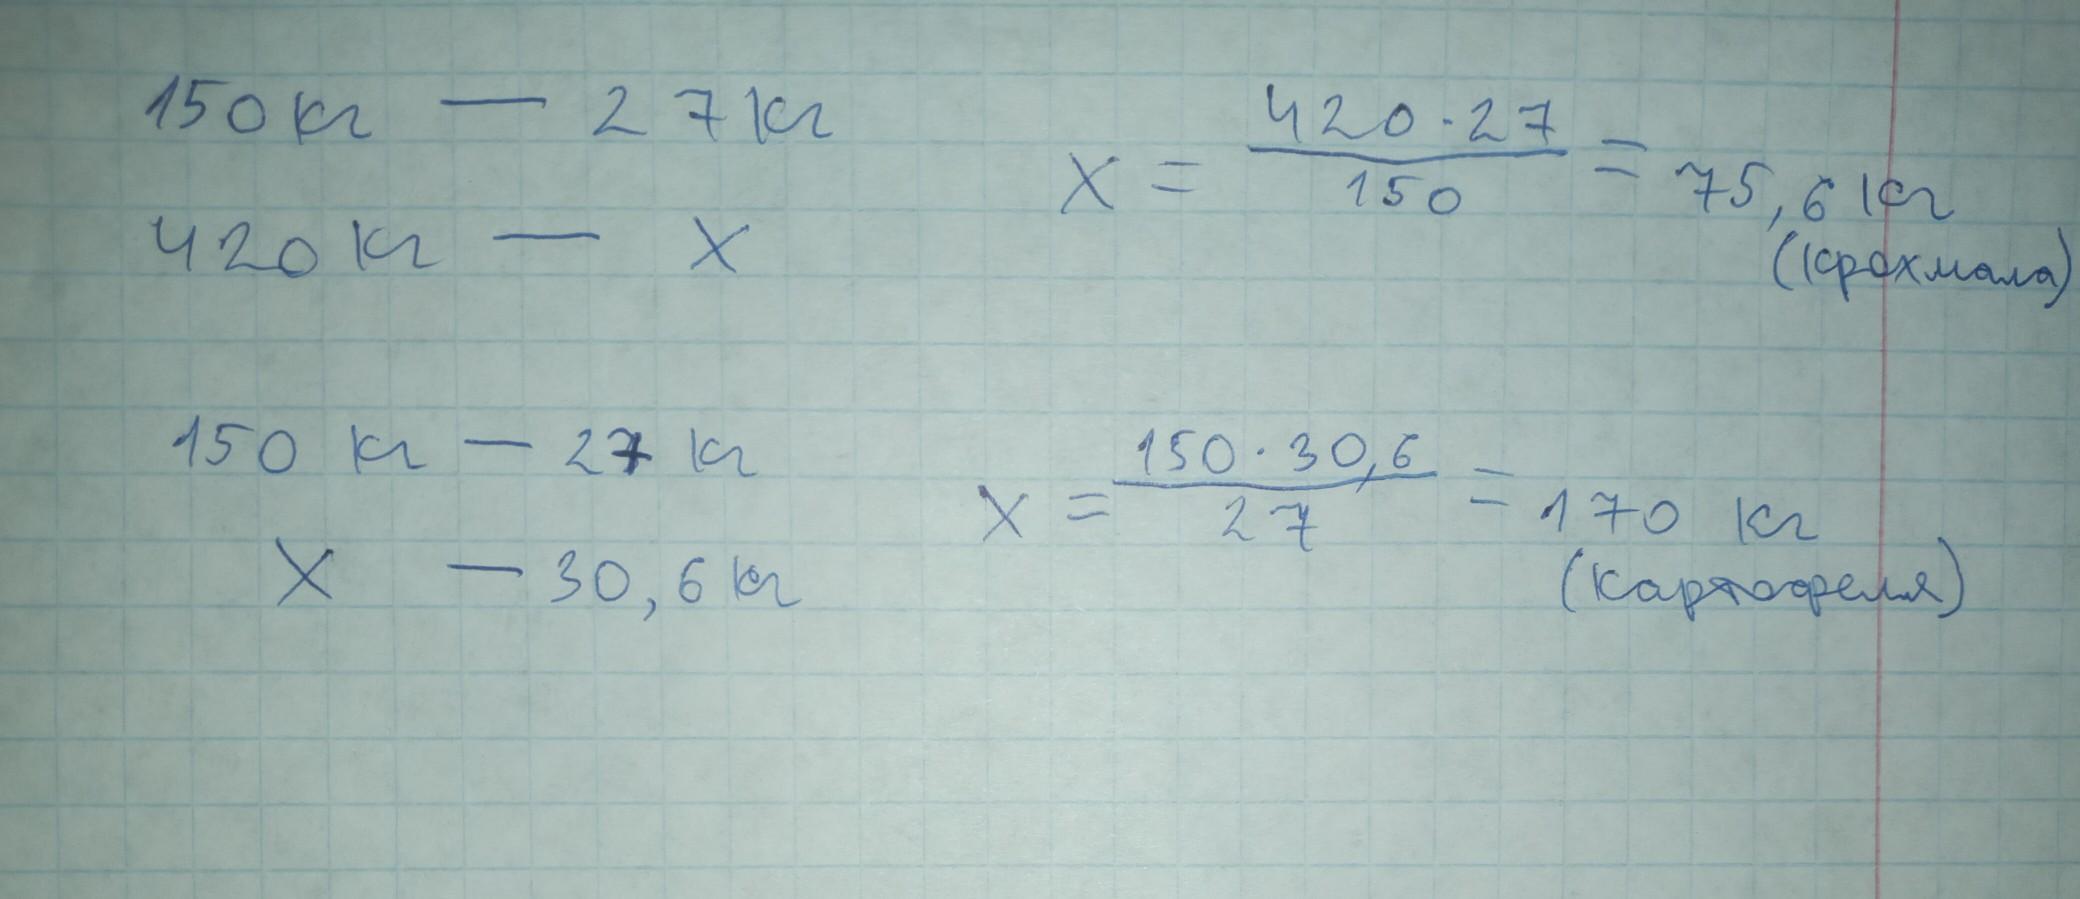 150 кг — 27 кг
420 кг — х
х = 420 · 27 / 150 = 75,6 кг
(крахмала)
150 кг — 27 кг
х — 30,6 кг
х = 150 · 30,6 / 27 = 170 кг
(картофеля)